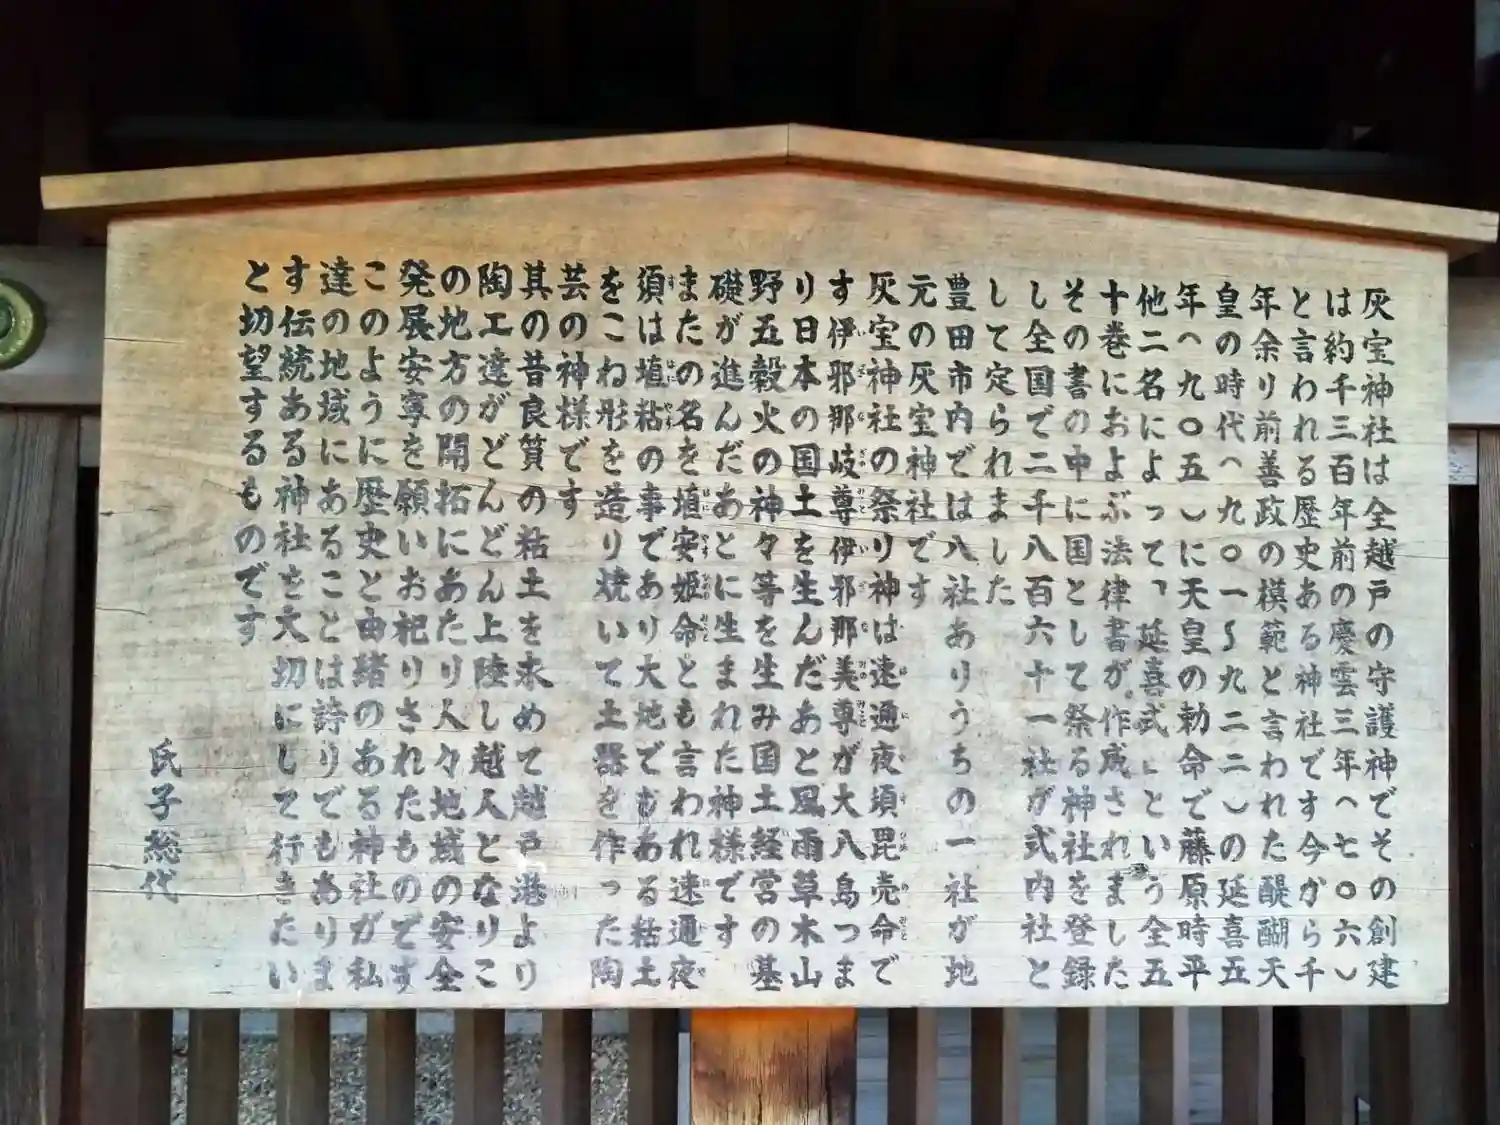 灰宝神社は全越戸の守護神でその創建
は約千三百年前の慶雲三年（七〇六）
と言われる歴史ある神社です今から千
年余り前善政の模範と言われた醍醐天
皇の時代（九〇一〜九二二）の延喜五
年（九〇五）に天皇の勅命で藤原時平
他二名によって「延喜式」という全五
十巻におよぶ法律書が作成されました
その書の中に国として祭る神社を登録
し全国で二千八百六十一社が式内社と
して定られました
豊田市内では八社ありうちの一社が地
元の灰宝神社です
灰宝神社の祭り神は速通夜須毘売命で
す伊邪那岐尊伊邪那美尊が大八島つま
り日本の国土を生んだあと風雨草木山
野五穀火の神々等を生み国土経営の基
礎が進んだあとに生まれた神様です
またの名を埴安姫命とも言われ速通夜
須は埴粘の事であり大地でもある粘土
をこね形を造り焼いて土器を作った陶
芸の神様です
其の昔良質の粘土を求めて越戸港より
陶工達がどんどん上陸し越人となりこ
の地方の開拓にあたり人々地域の安全
発展安寧を願いお祀りされたものです
このように歴史と由緒のある神社が私
達の地域にあることは誇りでもありま
す伝統ある神社を大切にして行きたい
と切望するものです
氏子総代